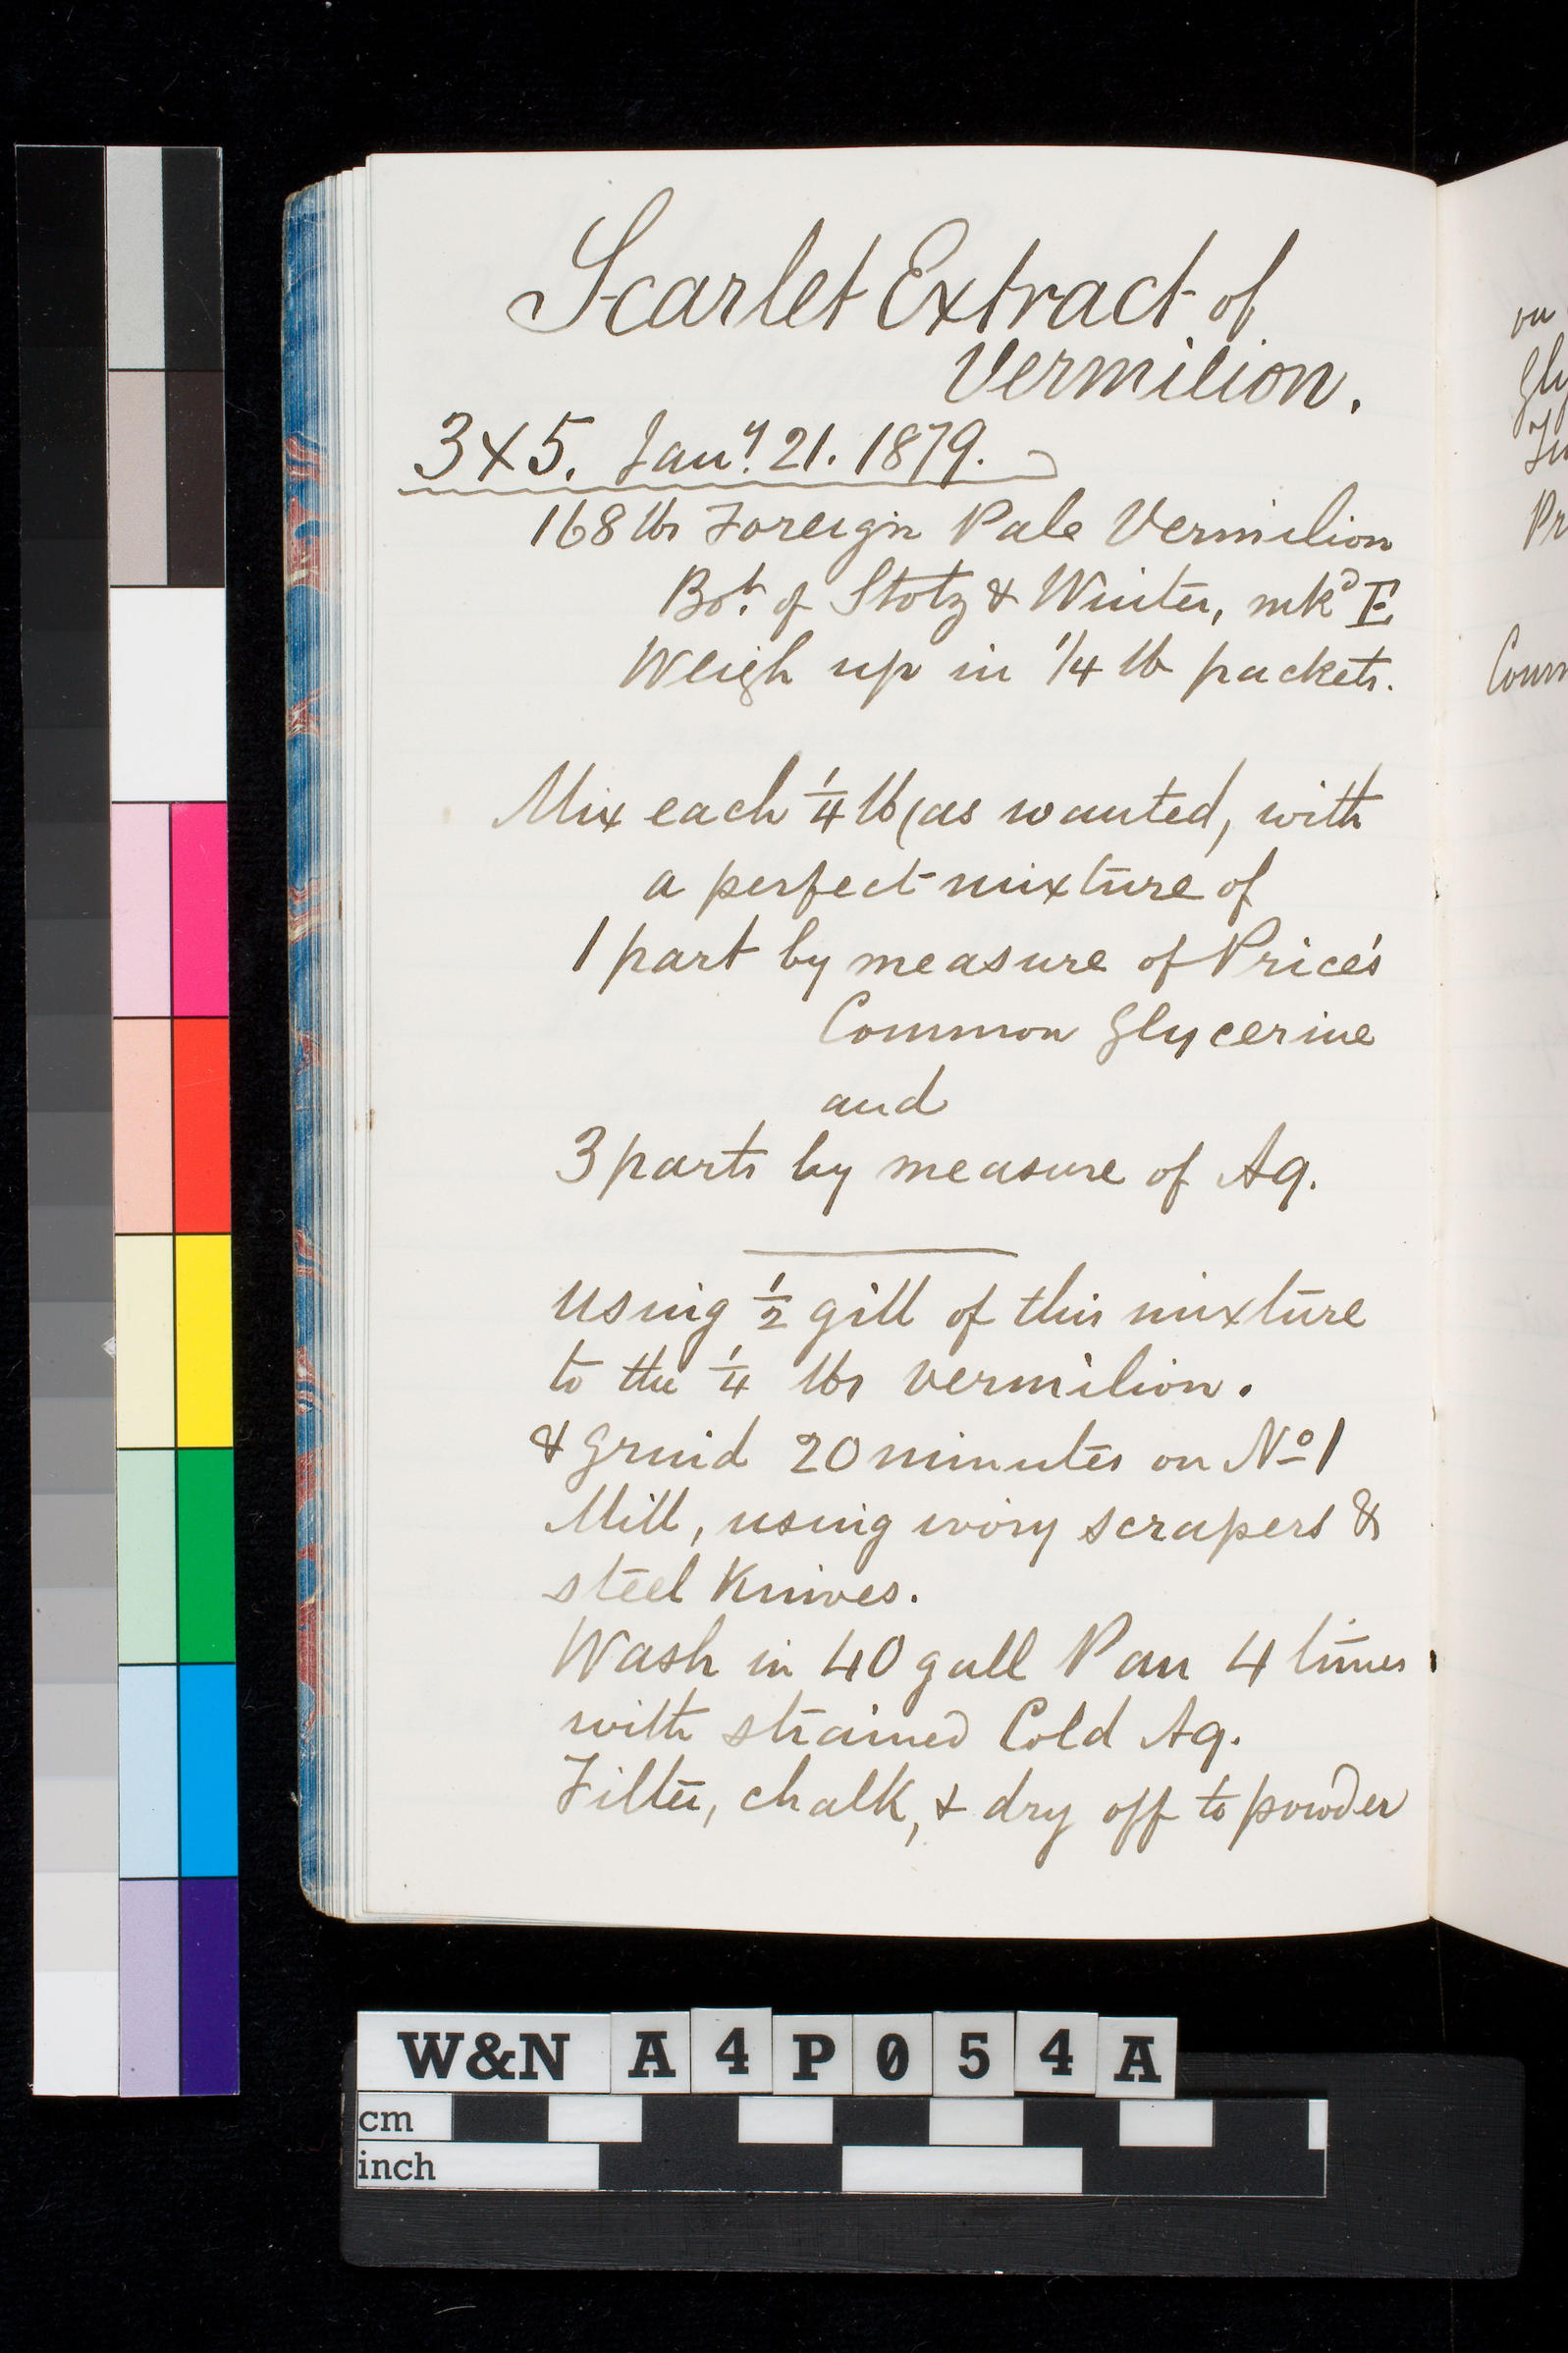 Scarlet Extract of
Vermilion.
3x5. Jany. 21. 1879.
168 lbs Foreign Pale Vermilion
Bot. of Stotz & Winter, mkd E
Weigh up in 1/4 lb packets.
Mix each 1/4 lb (as wanted, with
a perfect mixture of
1 part by measure of Price's
Common Glycerine
and
3 parts by measure of Aq.
using 1/2 gill of this mixture
to the 1/4 lbs vermilion.
& grind 20 minutes on No 1
Mill, using ivory scrapers &
steel Knives.
Wash in 40 gall Pan 4 times
with strained Cold Aq.
Filter, chalk, & dry off to powder
on
Gly
of
Pr
Comm
W&N A4P054A
cm
inch